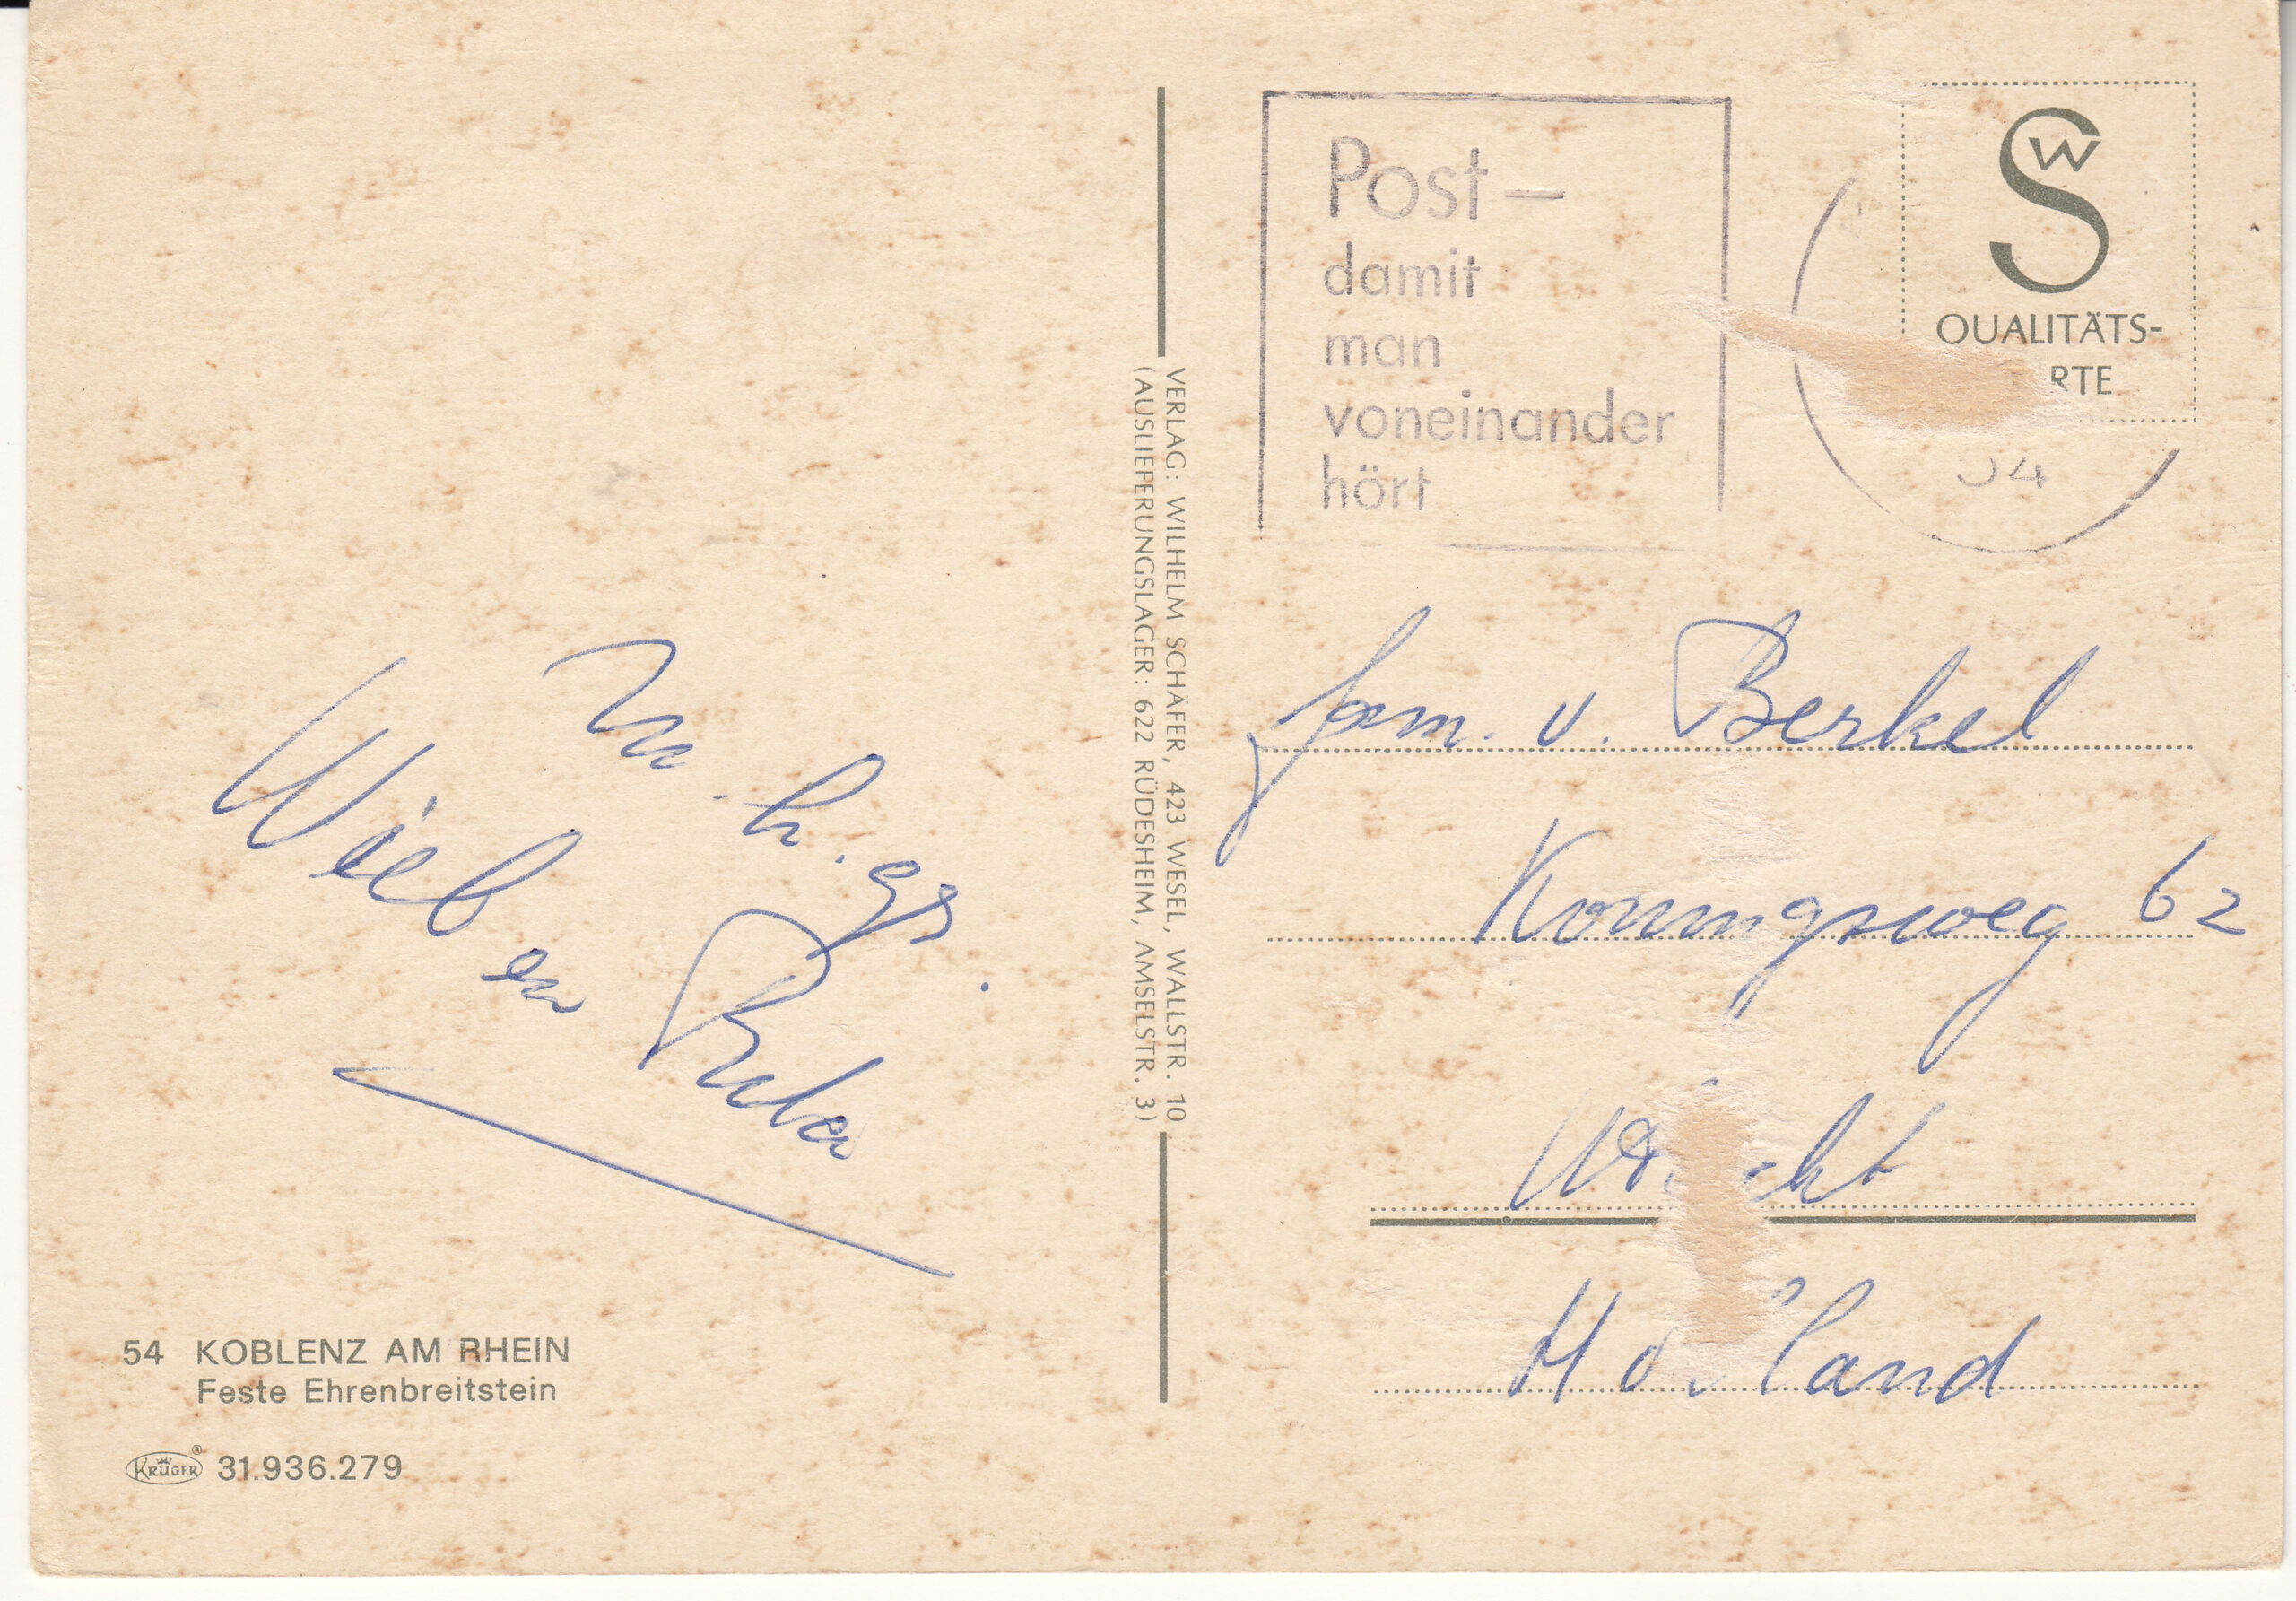 Post –
damit
man
voneinander
hört
SW
QUALITÄTS-
RTE
54
VERLAG: WILHELM SCHÄFER, 423 WESEL, WALLSTR. 10
(AUSLIEFERUNGSLAGER: 622 RÜDESHEIM, AMSELSTR. 3)
h. gr.
Wieb en
fam. v. Berkel
Koningsweg 62
Holland
54 KOBLENZ AM RHEIN
Feste Ehrenbreitstein
KRÜGER® 31.936.279